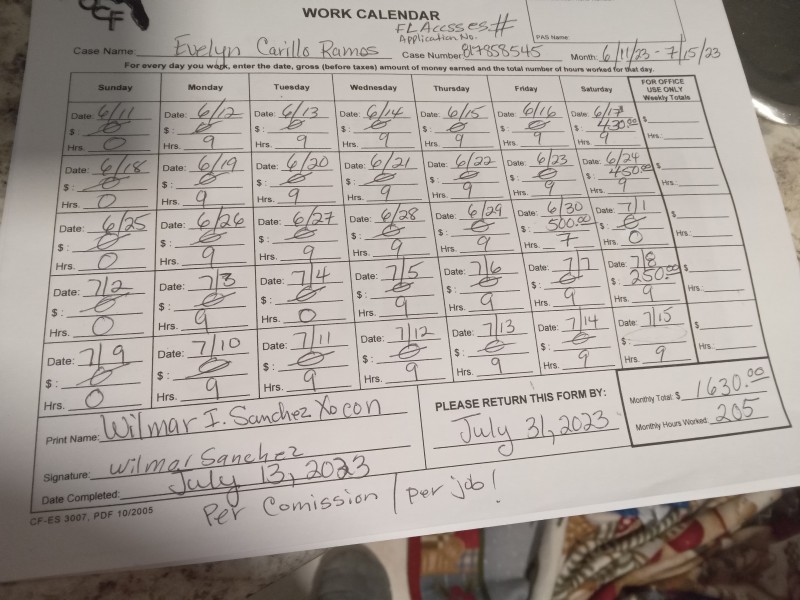 CF
WORK CALENDAR
FL Accsses #
Application No.
PAS Name
Case Name: Evelyn Carillo Ramos Case Number 817858545 Month: 6/11/23 - 7/15/23
For every day you work, enter the date, gross (before taxes) amount of money earned and the total number of hours worked for that day.
Sunday Monday Tuesday Wednesday Thursday Friday Saturday FOR OFFICE USE ONLY Weekly Totals
Date: 6/11 Date: 6/12 Date: 6/13 Date: 6/14 Date: 6/15 Date: 6/16 Date: 6/17
$: 0 $: 0 $: 0 $: 0 $: 0 $: 0 $: 430.00 $
Hrs. 0 Hrs. 9 Hrs. 9 Hrs. 9 Hrs. 9 Hrs. 9 Hrs. 9 Hrs.
Date: 6/18 Date: 6/19 Date: 6/20 Date: 6/21 Date: 6/22 Date: 6/23 Date: 6/24
$: 0 $: 0 $: 0 $: 0 $: 0 $: 0 $: 450.00 $
Hrs. 0 Hrs. 9 Hrs. 9 Hrs. 9 Hrs. 9 Hrs. 9 Hrs. 9 Hrs.
Date: 6/25 Date: 6/26 Date: 6/27 Date: 6/28 Date: 6/29 Date: 6/30 Date: 7/1
$: 0 $: 0 $: 0 $: 0 $: 0 $: 500.00 $: 0 $
Hrs. 0 Hrs. 9 Hrs. 9 Hrs. 9 Hrs. 9 Hrs. 7 Hrs. 0 Hrs.
Date: 7/2 Date: 7/3 Date: 7/4 Date: 7/5 Date: 7/6 Date: 7/7 Date: 7/8
$: 0 $: 0 $: 0 $: 0 $: 0 $: 0 $: 250.00 $
Hrs. 0 Hrs. 9 Hrs. 0 Hrs. 9 Hrs. 9 Hrs. 9 Hrs. 9 Hrs
Date: 7/9 Date: 7/10 Date: 7/11 Date: 7/12 Date: 7/13 Date: 7/14 Date: 7/15
$: 0 $: 0 $: 0 $: 0 $: 0 $: 0 $: $
Hrs. 0 Hrs. 9 Hrs. 9 Hrs. 9 Hrs. 9 Hrs. 9 Hrs. 9 Hrs.
Print Name: Wilmar I. Sanchez Xocon
Signature: Wilmar Sanchez
Date Completed: July 13, 2023
PLEASE RETURN THIS FORM BY:
July 31, 2023
Monthly Total: $ 1630.00
Monthly Hours Worked: 205
CF-ES 3007, PDF 10/2005
Per Comission / per job!